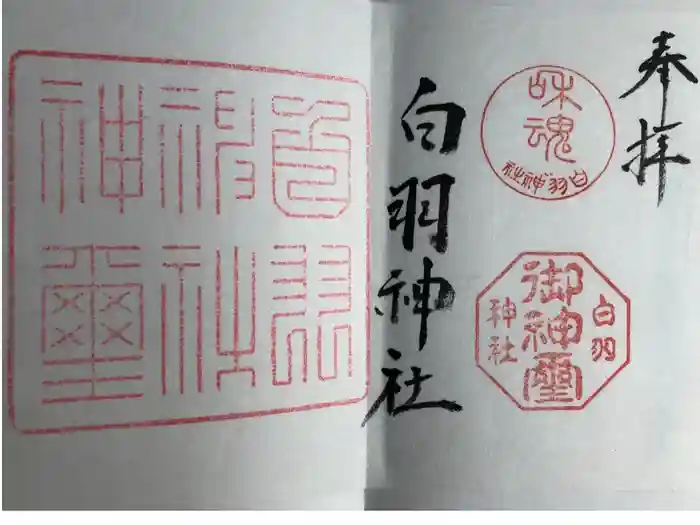 奉拝
咊魂
白羽神社
白羽
御神璽
神社
白羽神社
白羽
神社
神璽